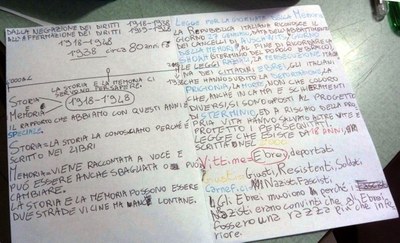 DALLA NEGAZIONE DEI DIRITTI 1918-1938
ALL'AFFERMAZIONE DEI DIRITTI
1918-1948
1938 circa 80 anni fa
LA STORIA E LA MEMORIA CI
STORIA
MEMORIA
1918-1948
È IL RAPPORTO CHE ABBIAMO CON QUESTI ANNI È
SPECIALE.
STORIA=LA STORIA LA CONOSCIAMO PERCHÉ È
SCRITTO NEI LIBRI
MEMORIA=VIENE RACCONTATA A VOCE E
PUÒ ESSERE ANCHE SBAGLIATA O PUÒ
CAMBIARE.
LA STORIA E LA MEMORIA POSSONO ESSERE
DUE STRADE VICINE MA ANCHE LONTANE.
LEGGE PER LA GIORNATA DELLA MEMORIA
LA REPUBBLICA ITALIANA RICONOSCE IL
GIORNO 27 GENNAIO, DATA DELL'ABBATTIMENTO
DEI CANCELLI DI
DELLA MEMORIA AL FINE DI RICORDARE
LE LEGGI RAZZIALI LA
DEI CITTADINI EBREI, GLI ITALIANI
CHE HANNO SUBITO LA DEPORTAZIONE, LA
PRIGIONIA, LA MORTE, NONCHÉ COLORO
CHE, ANCHE IN CAMPI E SCHIERAMENTI
DIVERSI, SI SONO OPPOSTI AL PROGETTO
DI STERMINIO, ED A RISCHIO DELLA PRO
PRIA VITA HANNO SALVATO ALTRE VITE E
PROTETTO I PERSEGUITATI.
LEGGE CHE ESISTE DA 18 ANNI,
SCRITTA NEL 2000
Vittime = Ebrei, deportati
Giusti, Resistenti, Soldati
Carnefici Nazisti, Fascisti
Gli Ebrei muoiono perché i
Nazisti erano convinti che gli Ebrei
fossero una razza più che infe
riore.